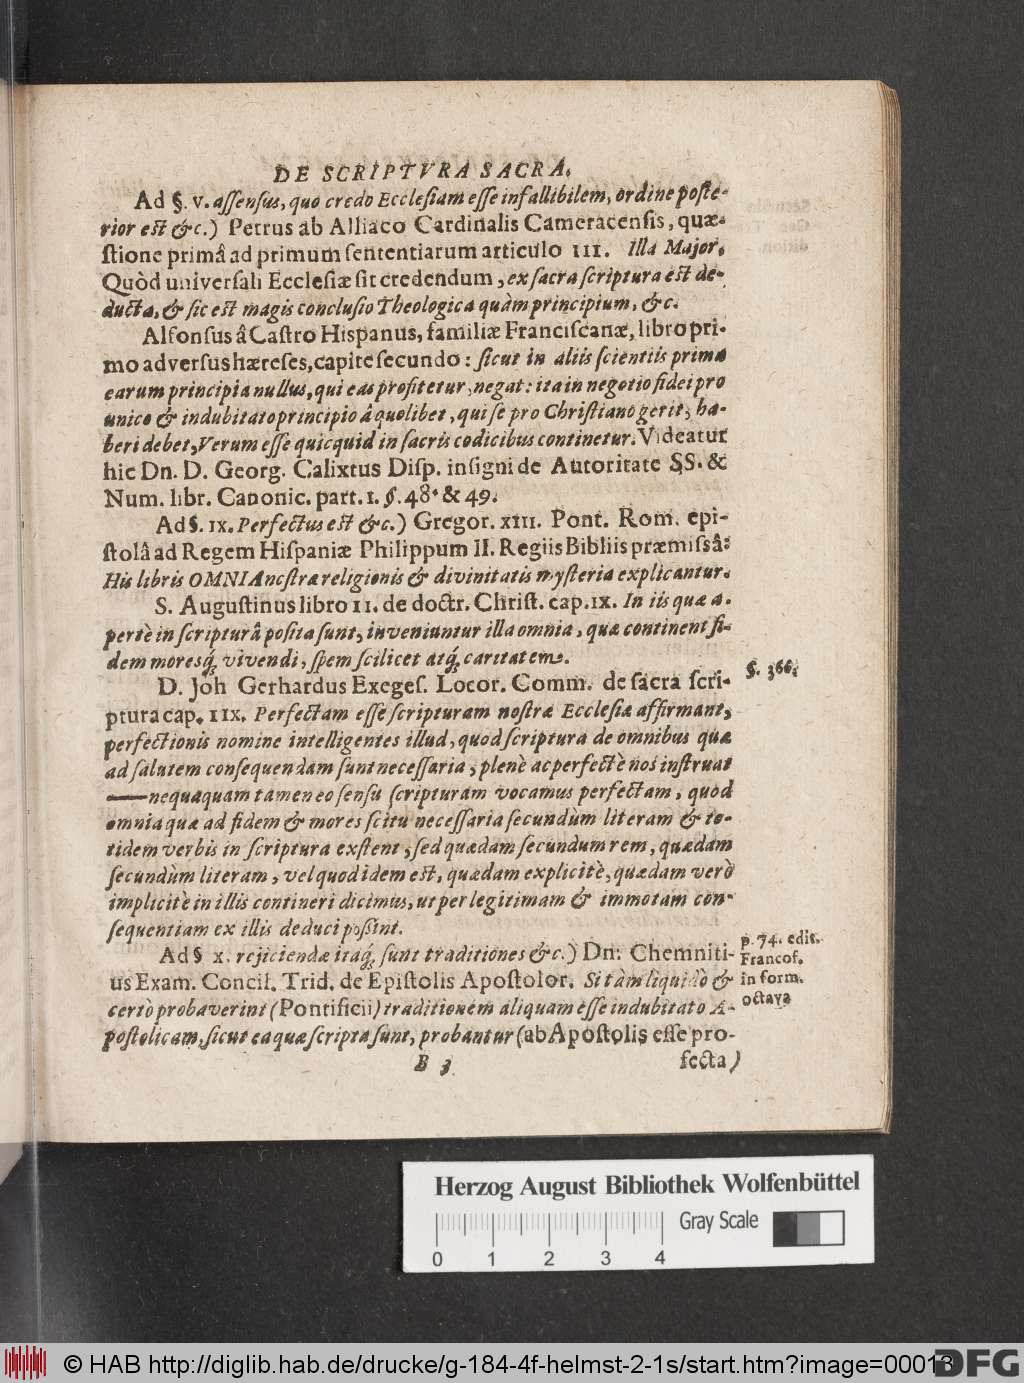 DE SCRIPTVRA SACRA.
Ad §. v. assensus, quo credo Ecclesiam esse infallibilem, ordine poste-
rior est &c.) Petrus ab Alliaco Cardinalis Cameracensis, quæ-
stione primâ ad primum sententiarum articulo III. Illa Major.
Quòd universali Ecclesiæ sit credendum, ex sacra scriptura est de-
ducta, & sic est magis conclusio Theologica quàm principium, &c.
Alfonsus â Castro Hispanus, familiæ Franciscanæ, libro pri-
mo adversus hæreses, capite secundo: sicut in aliis scientiis prima
earum principia nullus, qui eas profitetur, negat: ita in negotio fidei pro
unico & indubitato principio â quolibet, qui se pro Christiano gerit, ha-
beri debet, Verum esse quicquid in sacris codicibus continetur. Videatur
hic Dn. D. Georg. Calixtus Disp. insigni de Autoritate SS. &
Num. libr. Canonic. part. 1. §. 48. & 49.
Ad §. IX. Perfectus est &c.) Gregor. XIII. Pont. Rom. epi-
stolâ ad Regem Hispaniæ Philippum II. Regiis Bibliis præmissâ:
His libris OMNIA nostræ religionis & divinitatis mysteria explicantur.
S. Augustinus libro II. de doctr. Christ. cap. IX. In iis quæ a-
pertè in scripturâ posita sunt, inveniuntur illa omnia, quæ continent fi-
dem moresq́; vivendi, spem scilicet atq́; caritatem.
D. Joh Gerhardus Exeges. Locor. Comm. de sacra scri-
§. 366.
ptura cap. IIX. Perfectam esse scripturam nostræ Ecclesiæ affirmant,
perfectionis nomine intelligentes illud, quod scriptura de omnibus quæ
ad salutem consequendam sunt necessaria, plenè ac perfectè nos instruat
—— nequaquam tamen eo sensu scripturam vocamus perfectam, quòd
omnia quæ ad fidem & mores scitu necessaria secundùm literam & to-
tidem verbis in scriptura exstent, sed quædam secundum rem, quædam
secundùm literam, vel quod idem est, quædam explicitè, quædam verò
implicitè in illis contineri dicimus, ut per legitimam & immotam con-
sequentiam ex illis deduci possint.
Ad § X. rejiciendæ itaq́; sunt traditiones &c.) Dn: Chemniti-
us Exam. Concil. Trid. de Epistolis Apostolor. Si tàm liquidò &
certò probaverint (Pontificii) traditionem aliquam esse indubitato A-
postolicam, sicut ea quæ scripta sunt, probantur (ab Apostolis esse pro-
p. 74. edit.
Francof.
in form.
octava
B 3
fecta)
Herzog August Bibliothek Wolfenbüttel
Gray Scale
0 1 2 3 4
© HAB http://diglib.hab.de/drucke/g-184-4f-helmst-2-1s/start.htm?image=00013
DFG